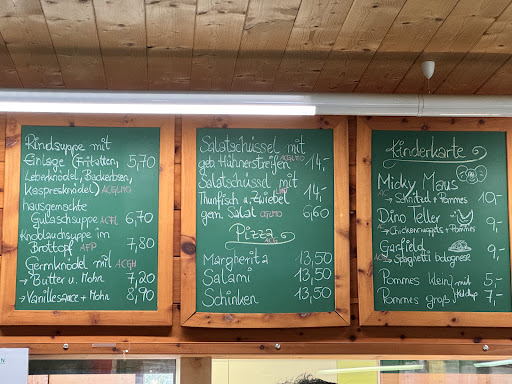 Rindsuppe mit
Einlage (Frittaten, 5,70
Leberknödel, Backerbsen,
Kaspressknödel) ACGLMO
hausgemachte
Gulaschsuppe ACFL 6,70
Knoblauchsuppe im
Brottopf AFP 7,80
Germknödel mit ACGH
→ Butter u. Mohn 7,20
→ Vanillesauce + Mohn 8,90
Salatschüssel mit
geb. Hühnerstreifen 14,-
Salatschüssel mit
Thunfisch u. Zwiebel 14,-
gem. Salat 6,60
Pizza
ACG
Margherita 13,50
Salami 13,50
Schinken 13,50
Kinderkarte
Micky Maus
→ Schnitzel + Pommes 10,-
Dino Teller
→ Chickennuggets + Pommes 9,-
Garfield
→ Spaghetti bolognese 9,-
Pommes klein) mit 5,-
Pommes groß) Ketchup 7,-